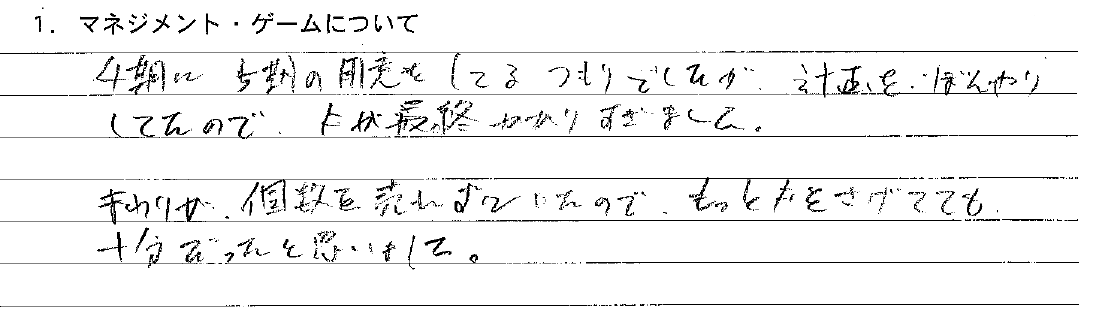 1. マネジメント・ゲームについて
4期に5期の用意をしてるつもりでしたが、計画をぼんやり
してたので、Fが最終かかりすぎました。
まわりが、個数を売れずにいたので、もっとFをさげてても
十分だったと思いました。